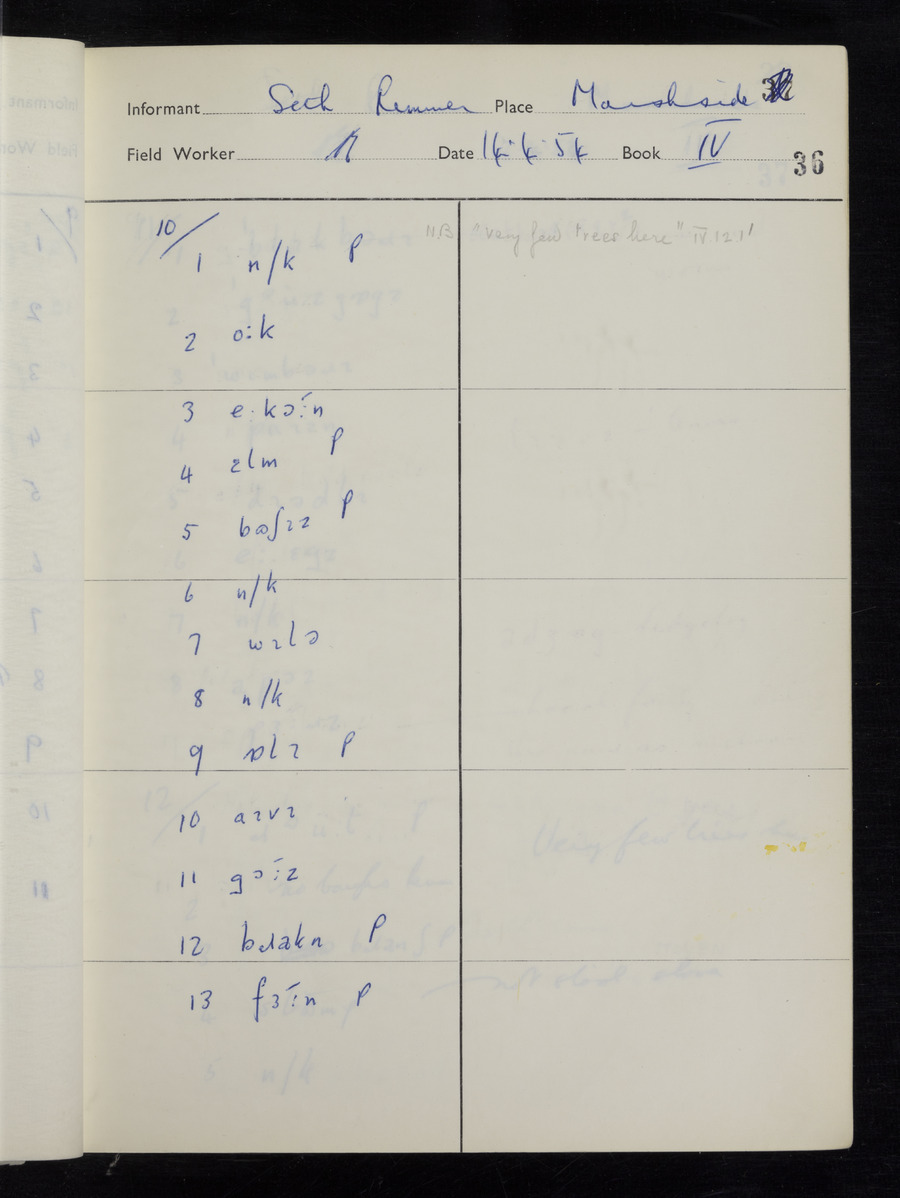 Informant Seth Rimmer Place Marshside
Field Worker Date 14.4.54 Book IV 36
10/
N.B. "very few trees here" IV.12.1'
1 n/k P
2 o:k
3 e:kɔ:n
4 ɛlm P
5 bʊʃɪz P
6 n/k
7 wɪlə
8 n/k
9 ɒlɪ P
10 aɪvɪ
11 gɔ:z
12 bɹakn P
13 fɜ:n P